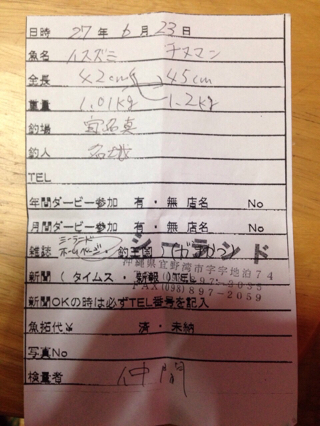 日時 27 年 6 月 23 日
魚名 イスズミ チヌマン
全長 42cm 45cm
重量 1.01kg 1.2kg
釣場 宜名真
釣人
TEL
年間ダービー参加 有・無 店名 No
月間ダービー参加 有・無 店名 No
雑誌 シーランド ホームページ ・釣王国
シーランド
沖縄県宜野湾市字宇地泊74
新聞(タイムス・新報)TEL (098)897-2035
FAX(098)897-2059
新聞OKの時は必ずTEL番号を記入
魚拓代¥ 済・未納
写真No
検量者 仲間